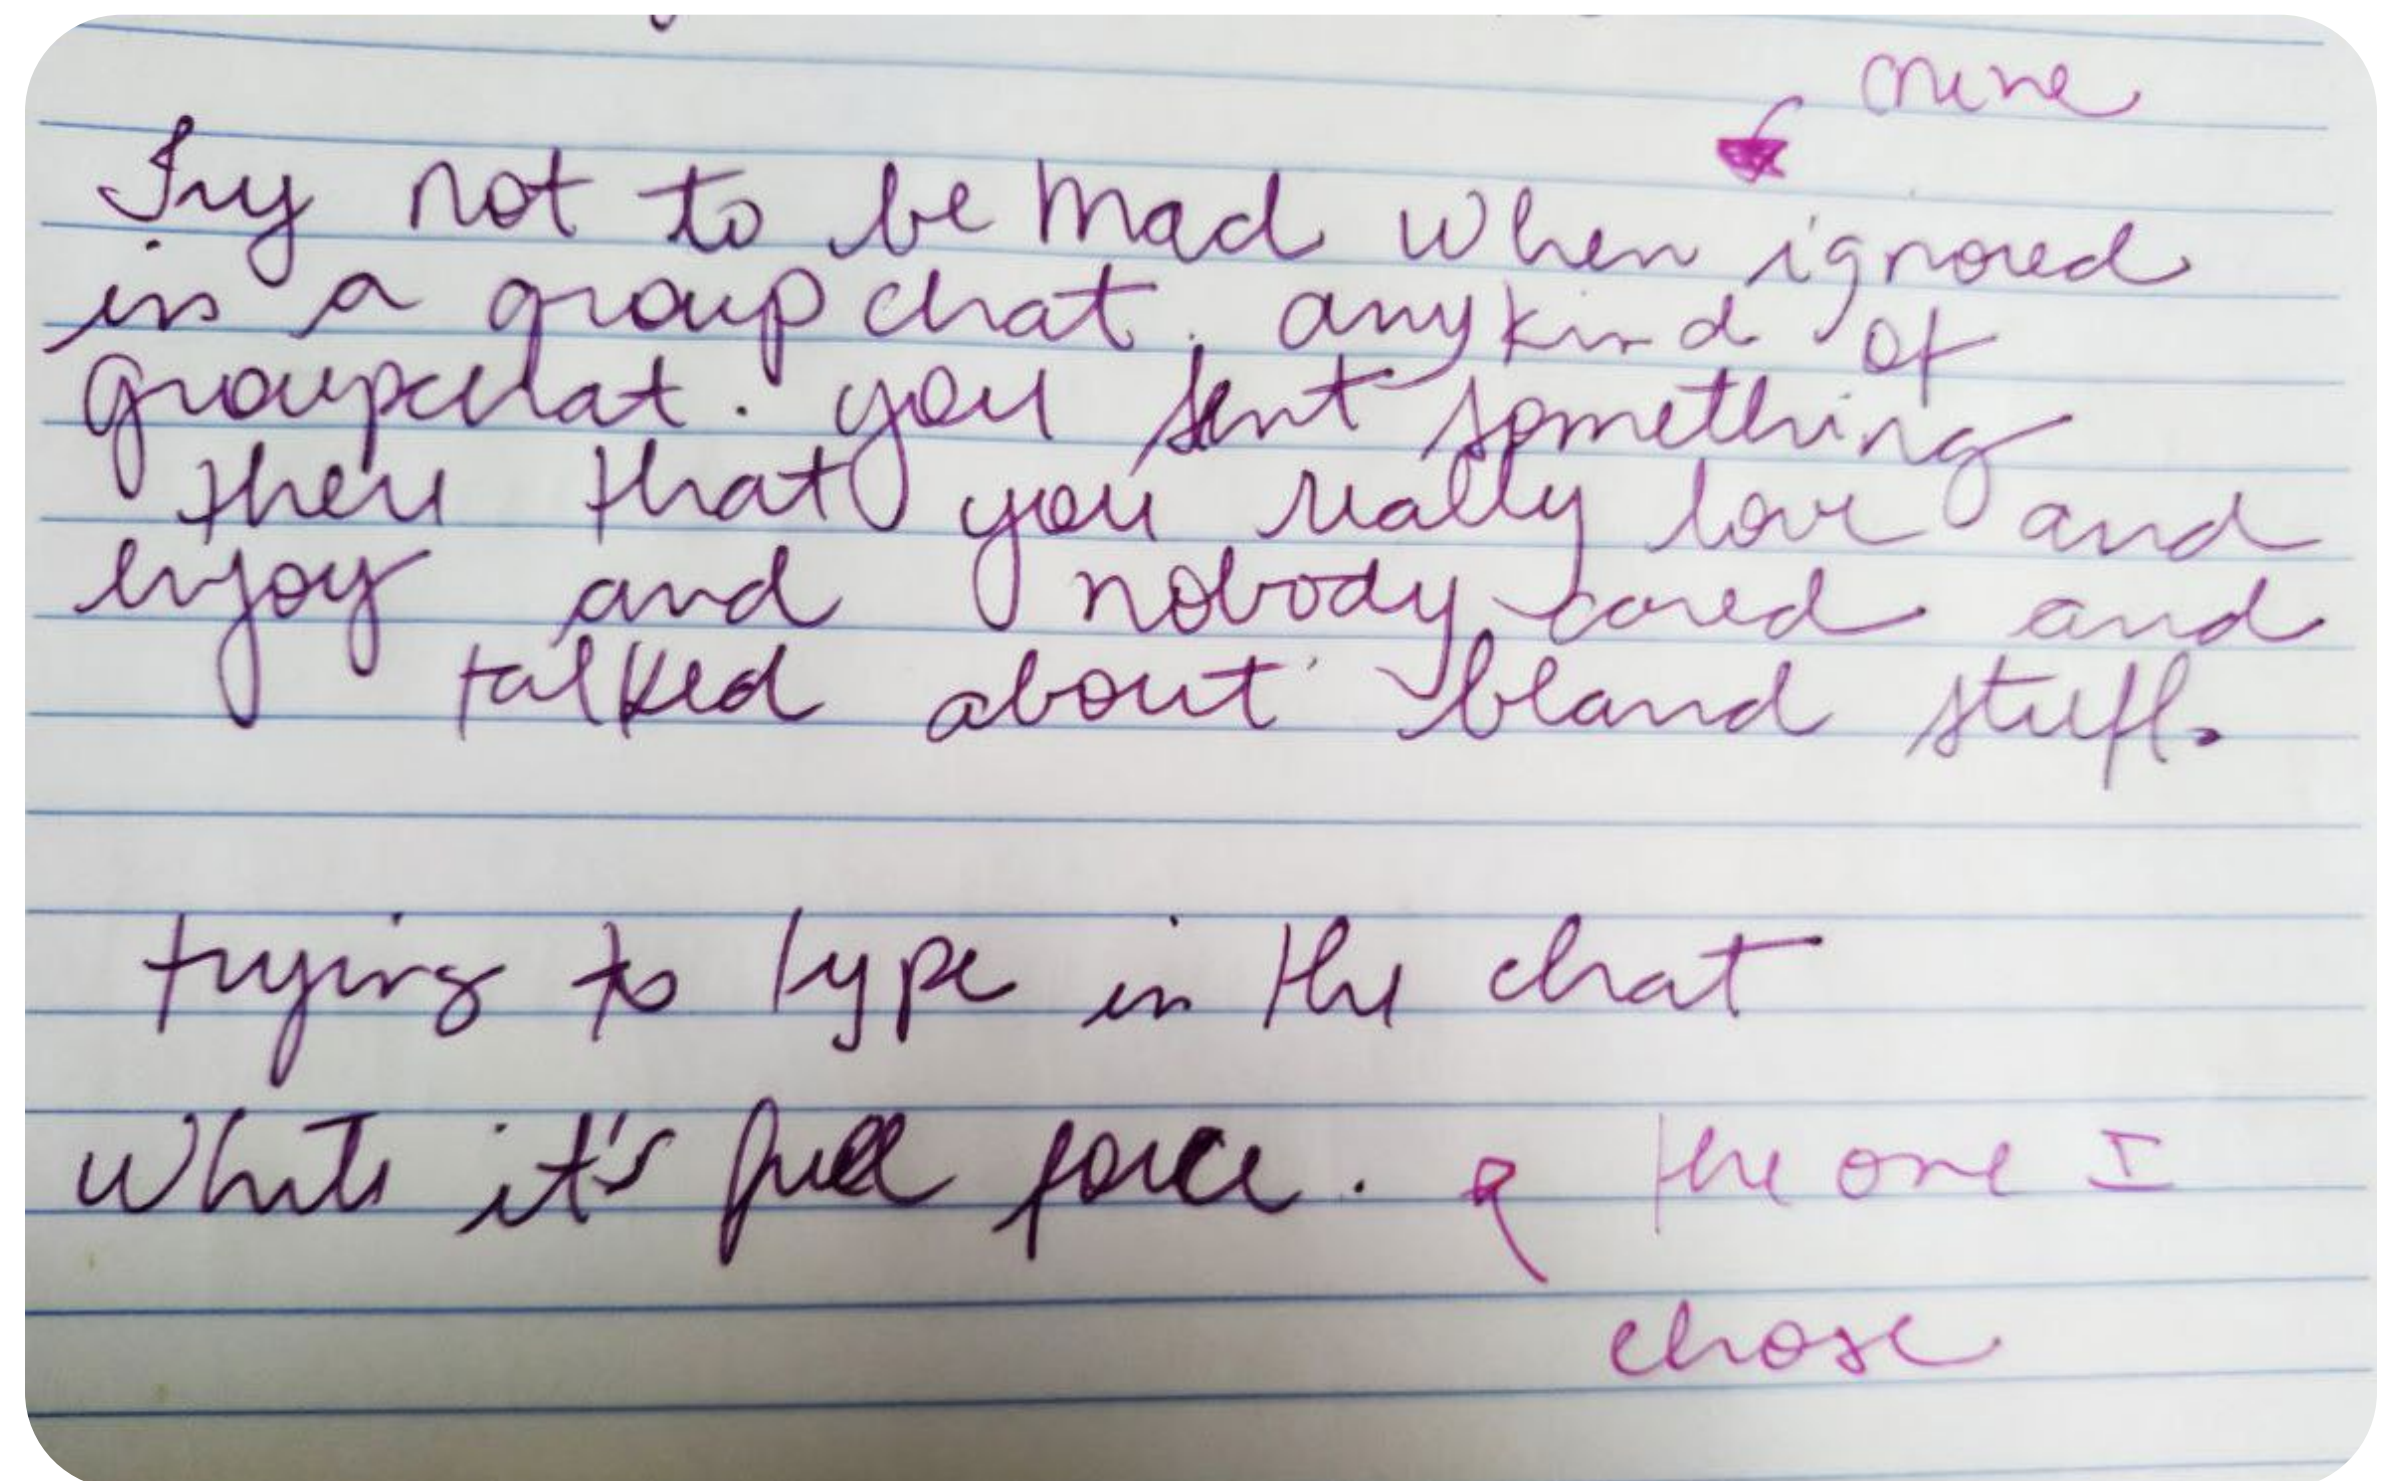 mine
Try not to be mad when ignored
in a group chat. any kind of
groupchat. you sent something
there that you really love and
enjoy and nobody cared and
talked about bland stuff.
trying to type in the chat
while it's full force. the one I
chose